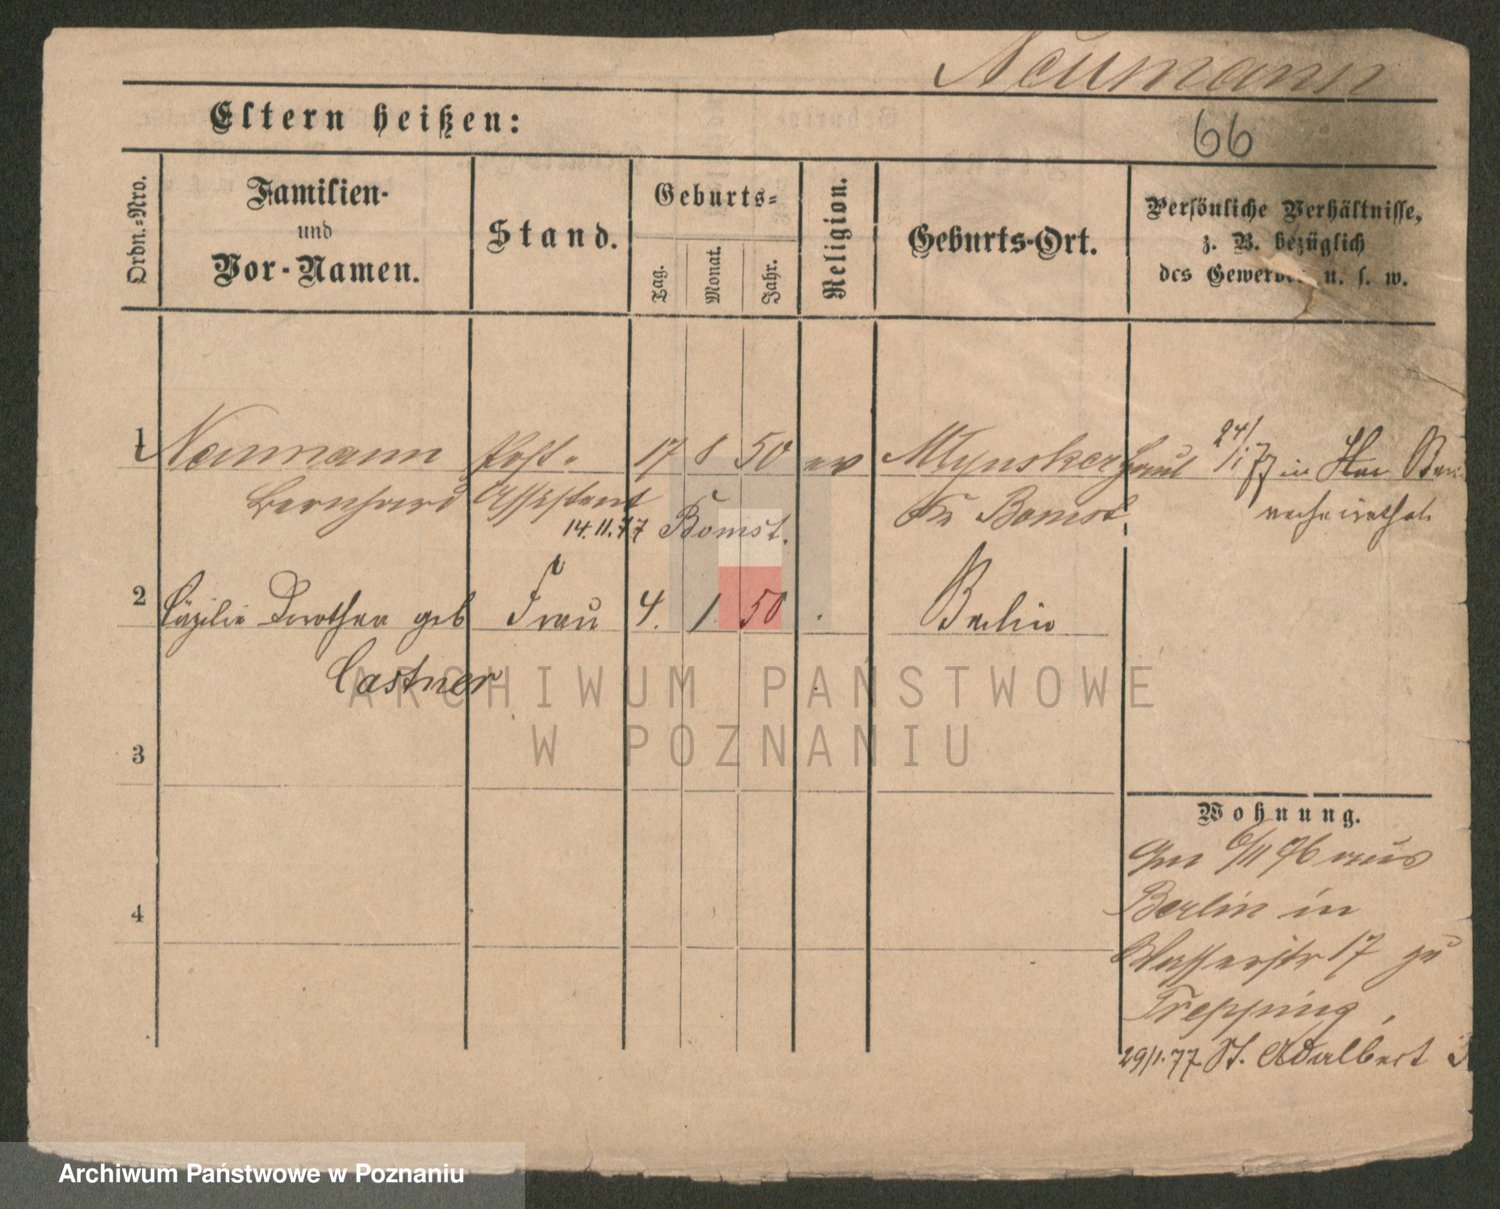 Neumann
Eltern heißen:
66
Ordn.-Nro.
Familien-
und
Vor-Namen.
Stand.
Geburts-
Tag.
Monat.
Jahr.
Religion.
Geburts-Ort.
Persönliche Verhältnisse,
z. B. bezüglich
des Gewerbes u. s. w.
1 Neumann Post- 17 8 50 ev Mlynsker 24/1 77 in
Bernhard Assistent Kr Bomst verheirathet
14.11.77 Bomst.
2 Cäzilie Dorothea geb Frau 4. 1. 50 Berlin
Castner
ARCHIWUM PAŃSTWOWE
W POZNANIU
3
Wohnung.
Am 6/11 76 aus
4 Berlin in
Wasserstr 17 zu
Trepping,
29/1.77 St. Adalbert 3
Archiwum Państwowe w Poznaniu